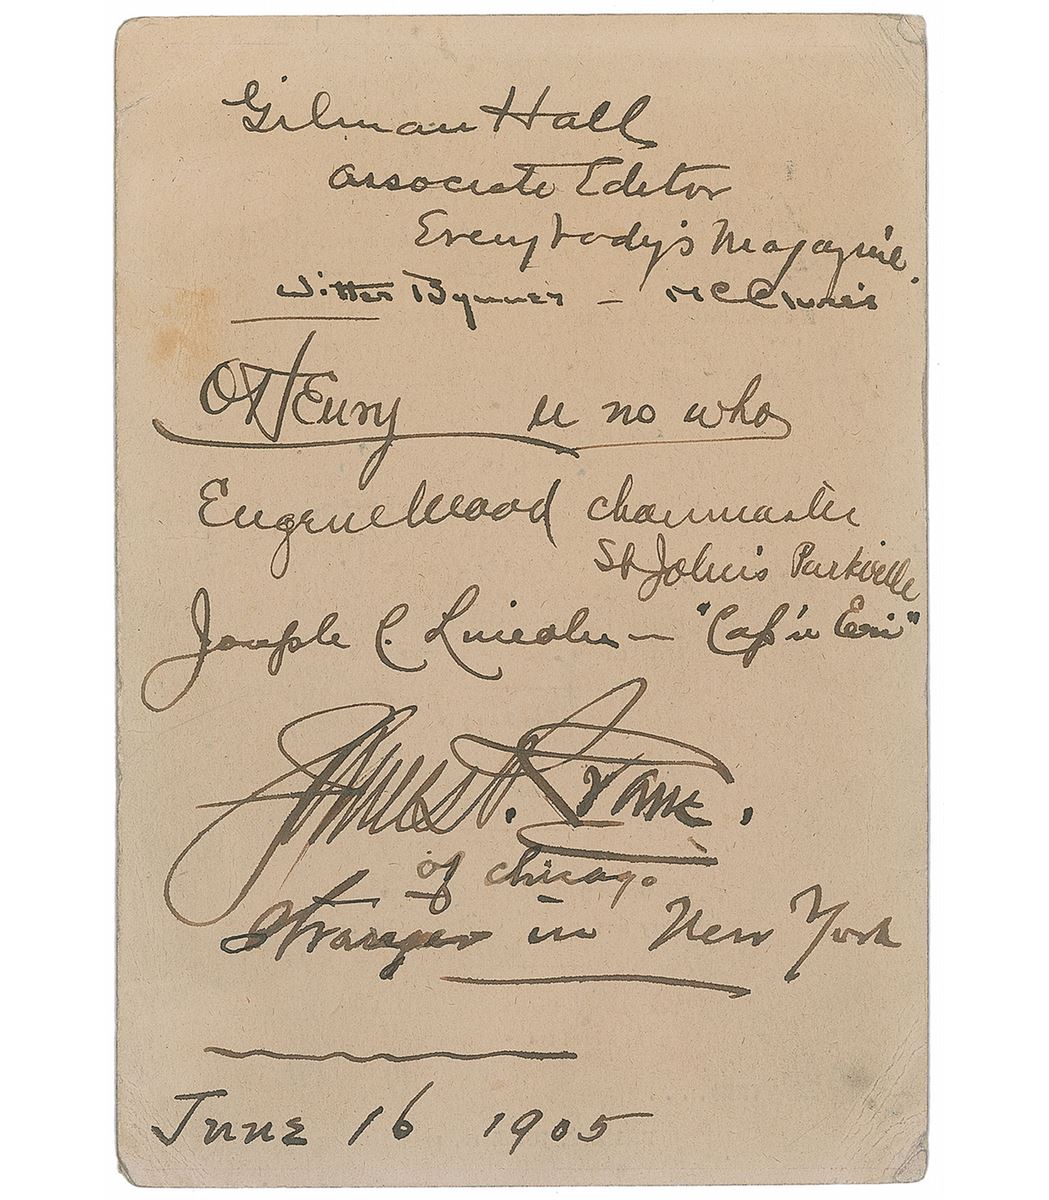 Gilman Hall
Associate Editor
Everybody's Magazine.
Witter Bynner – McClure's
O Henry u no who
Eugene Wood choirmaster
St John's Parkville
Joseph C. Lincoln — "Cap'n Eri"
of Chicago
Stranger in New York
June 16 1905